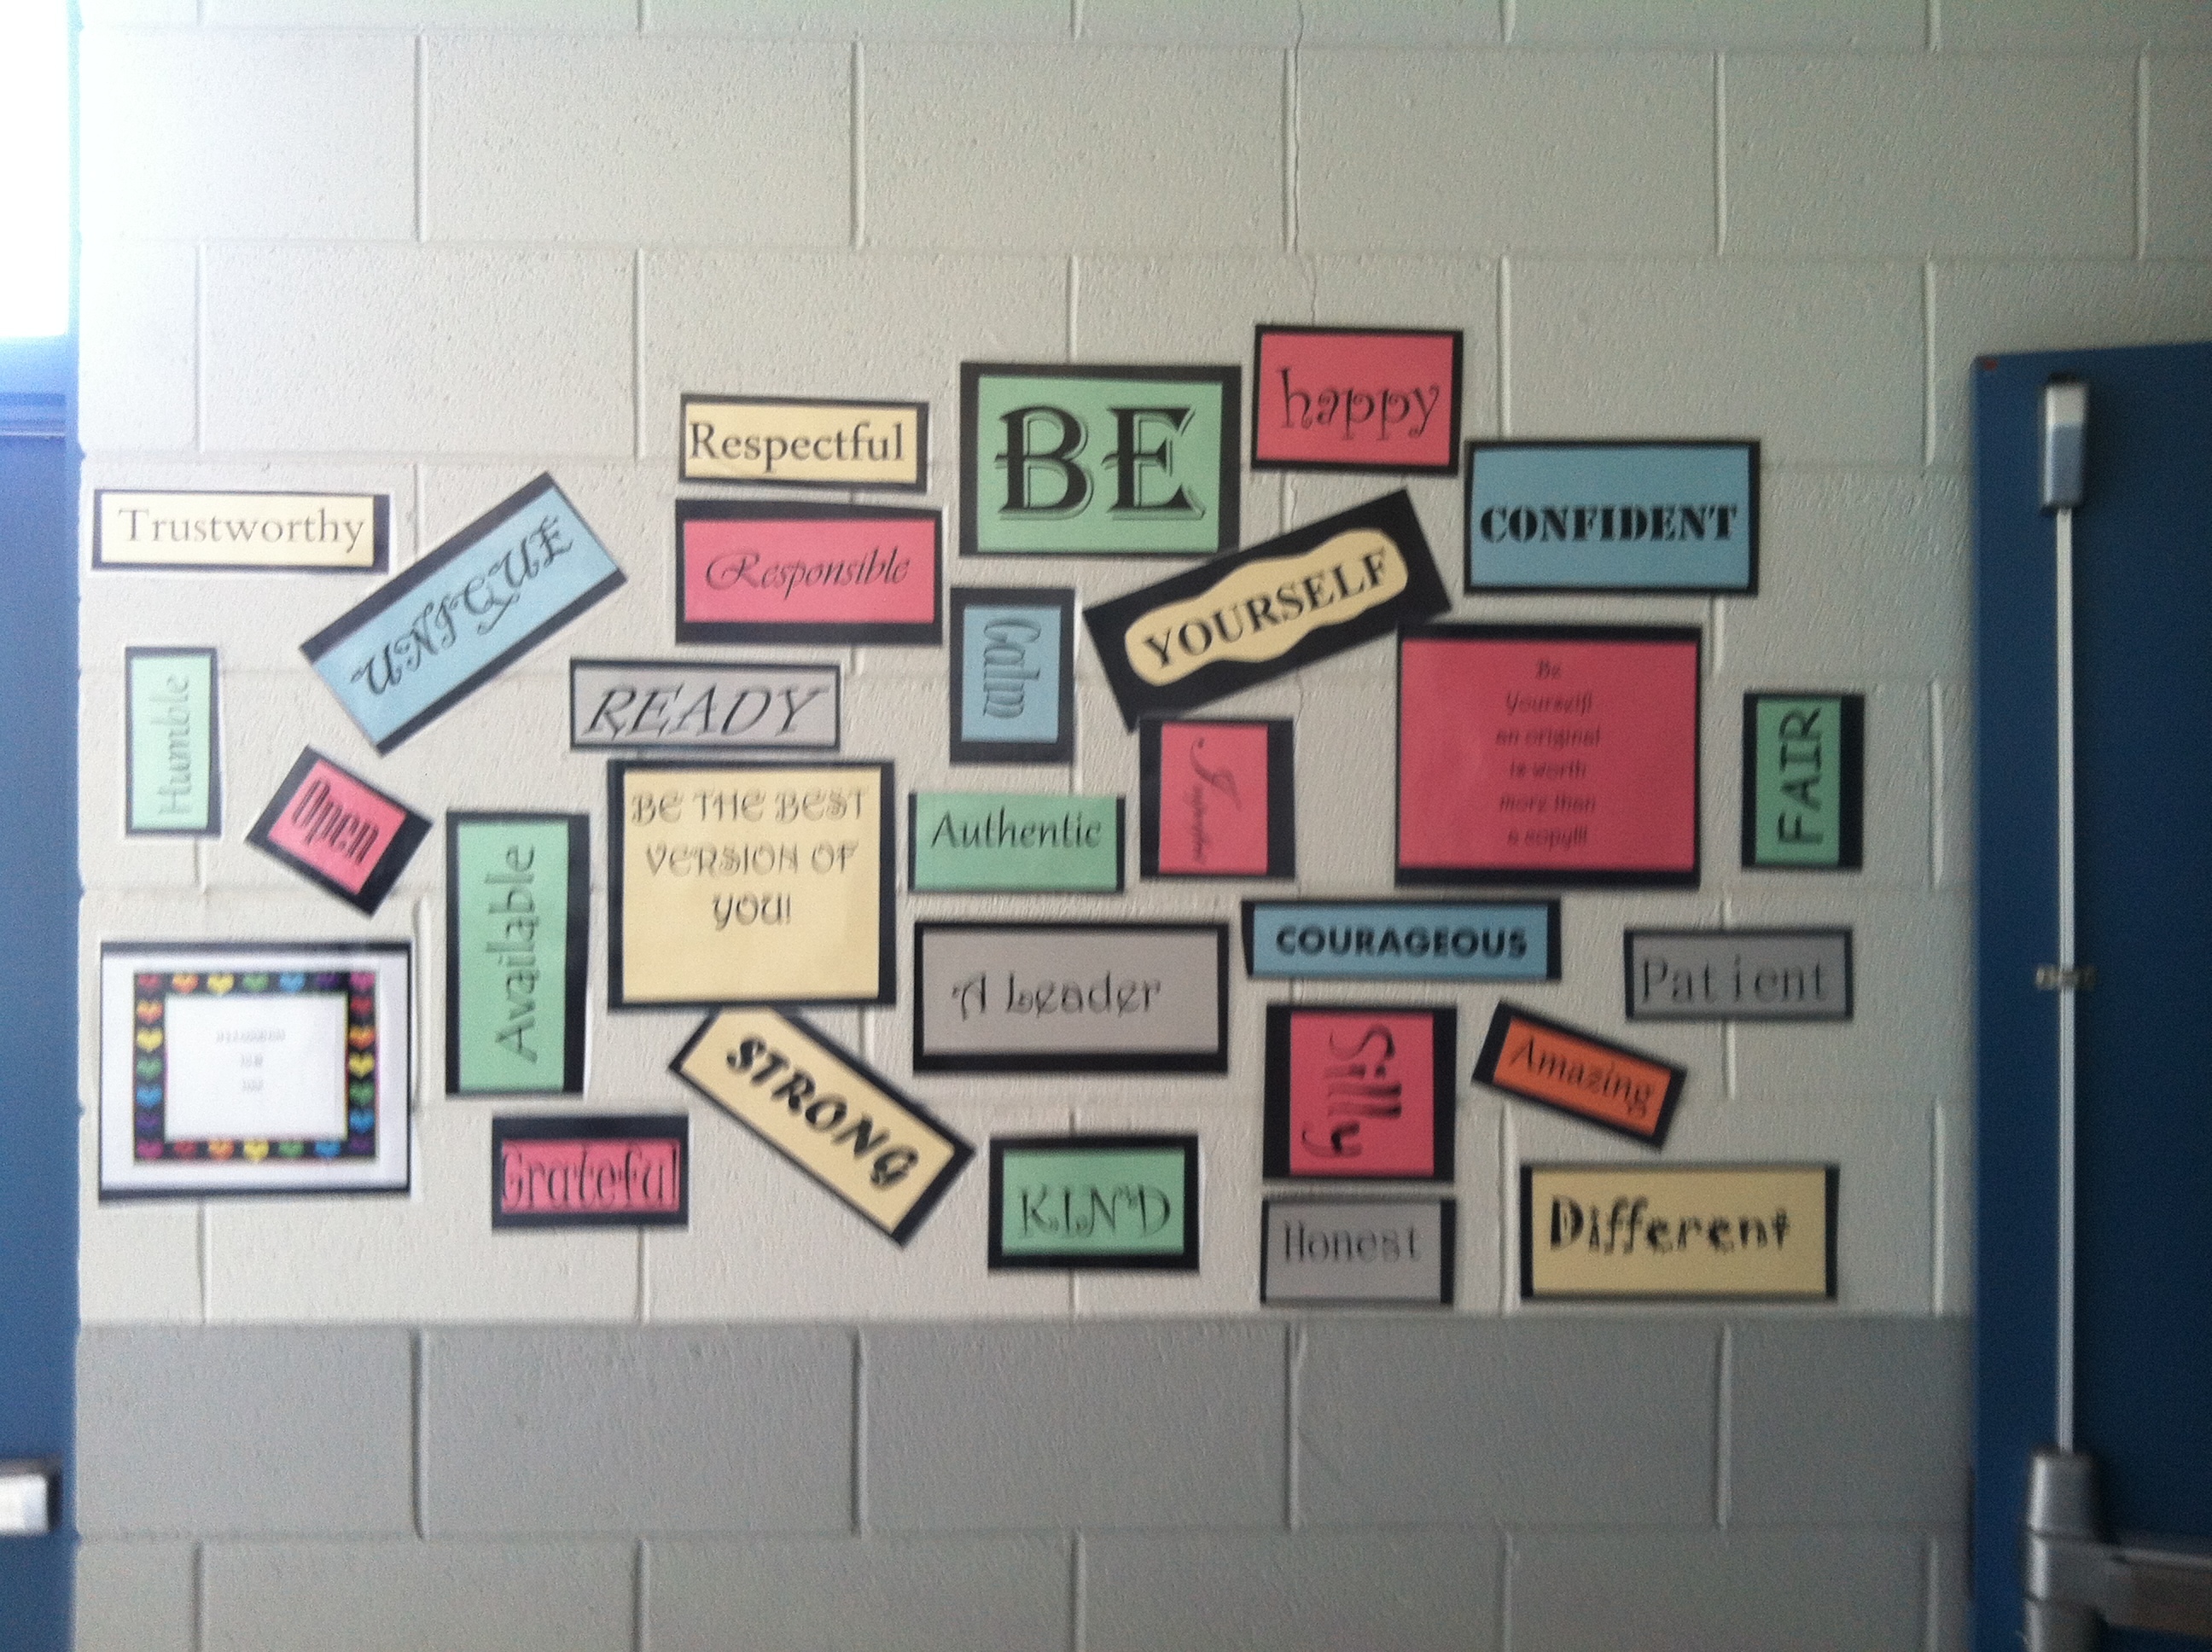 happy
BE
Respectful
CONFIDENT
Trustworthy
UNIQUE
Responsible
YOURSELF
Calm
READY
Humble
Be
Yourself!
an original
is worth
more than
a copy!!!
FAIR
Open
BE THE BEST
VERSION OF
YOU!
Authentic
Available
COURAGEOUS
A Leader
Patient
STRONG
Silly
Amazing
Grateful
KIND
Honest
Different